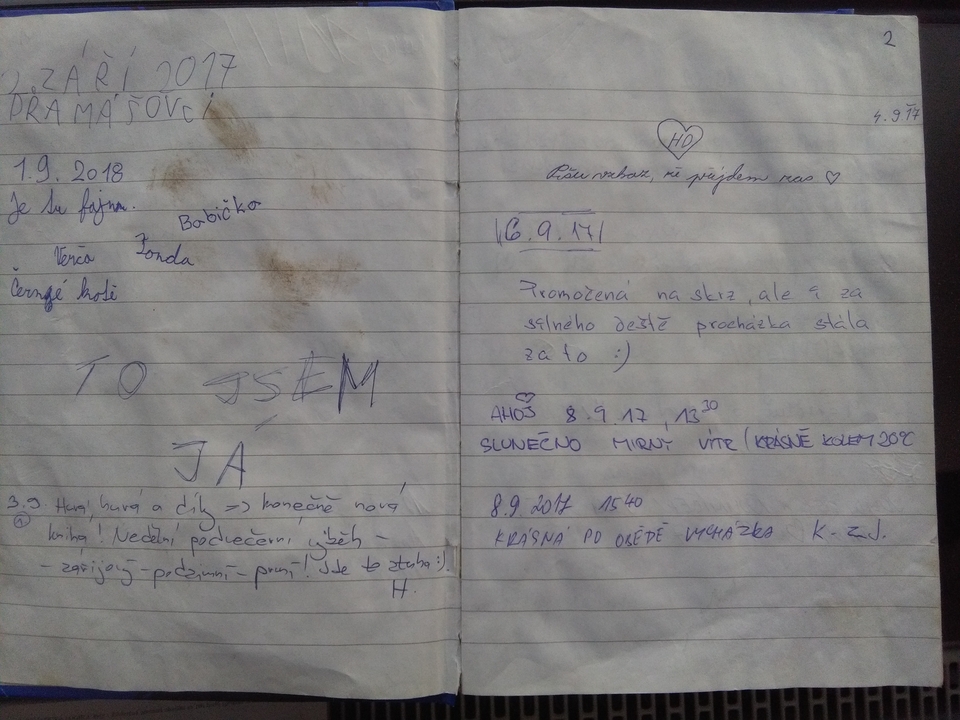 2. ZÁŘÍ 2017
PRAMÁŠOVCI
1.9. 2018
Je tu fajn.
Babička
Verča Fonda
Černé
TO JSEM
JÁ
3.9. Hurá, hurá a díky => konečně nová
kniha! Nedělní podvečerní výběh -
- zářijový - podzimní - první! Jde to ztuha :).
H.
2
4.9.17
HD
že přijdem zas ♡
6.9.17
Promočená na skrz, ale i za
silného deště procházka stála
za to :)
AHOJ 8.9.17, 13 30
SLUNEČNO MÍRNÝ VÍTR (KRÁSNĚ KOLEM 20°C
8.9.2017 15 40
KRÁSNÁ PO OBĚDĚ VYCHÁZKA K. z J.